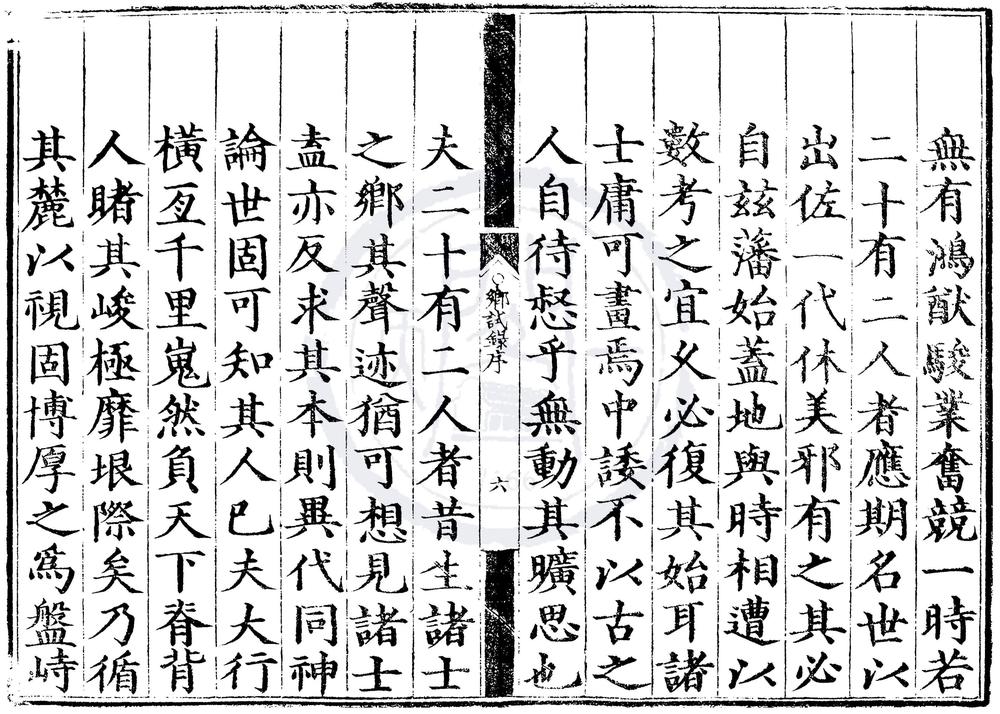 無有鴻猷駿業奮競一時若
二十有二人者應期名世以
出佐一代休美邪有之其必
自玆藩始蓋地與時相遭以
數考之宜夊必復其始耳諸
士庸可畫焉中諉不以古之
人自待惄乎無動其曠思也
鄉試錄序
六
夫二十有二人者昔生諸士
之鄉其聲迹猶可想見諸士
盍亦反求其本則異代同神
論世固可知其人已夫大行
橫亙千里嵬然負天下脊背
人睹其峻極靡垠際矣乃循
其麓以視固博厚之為盤峙